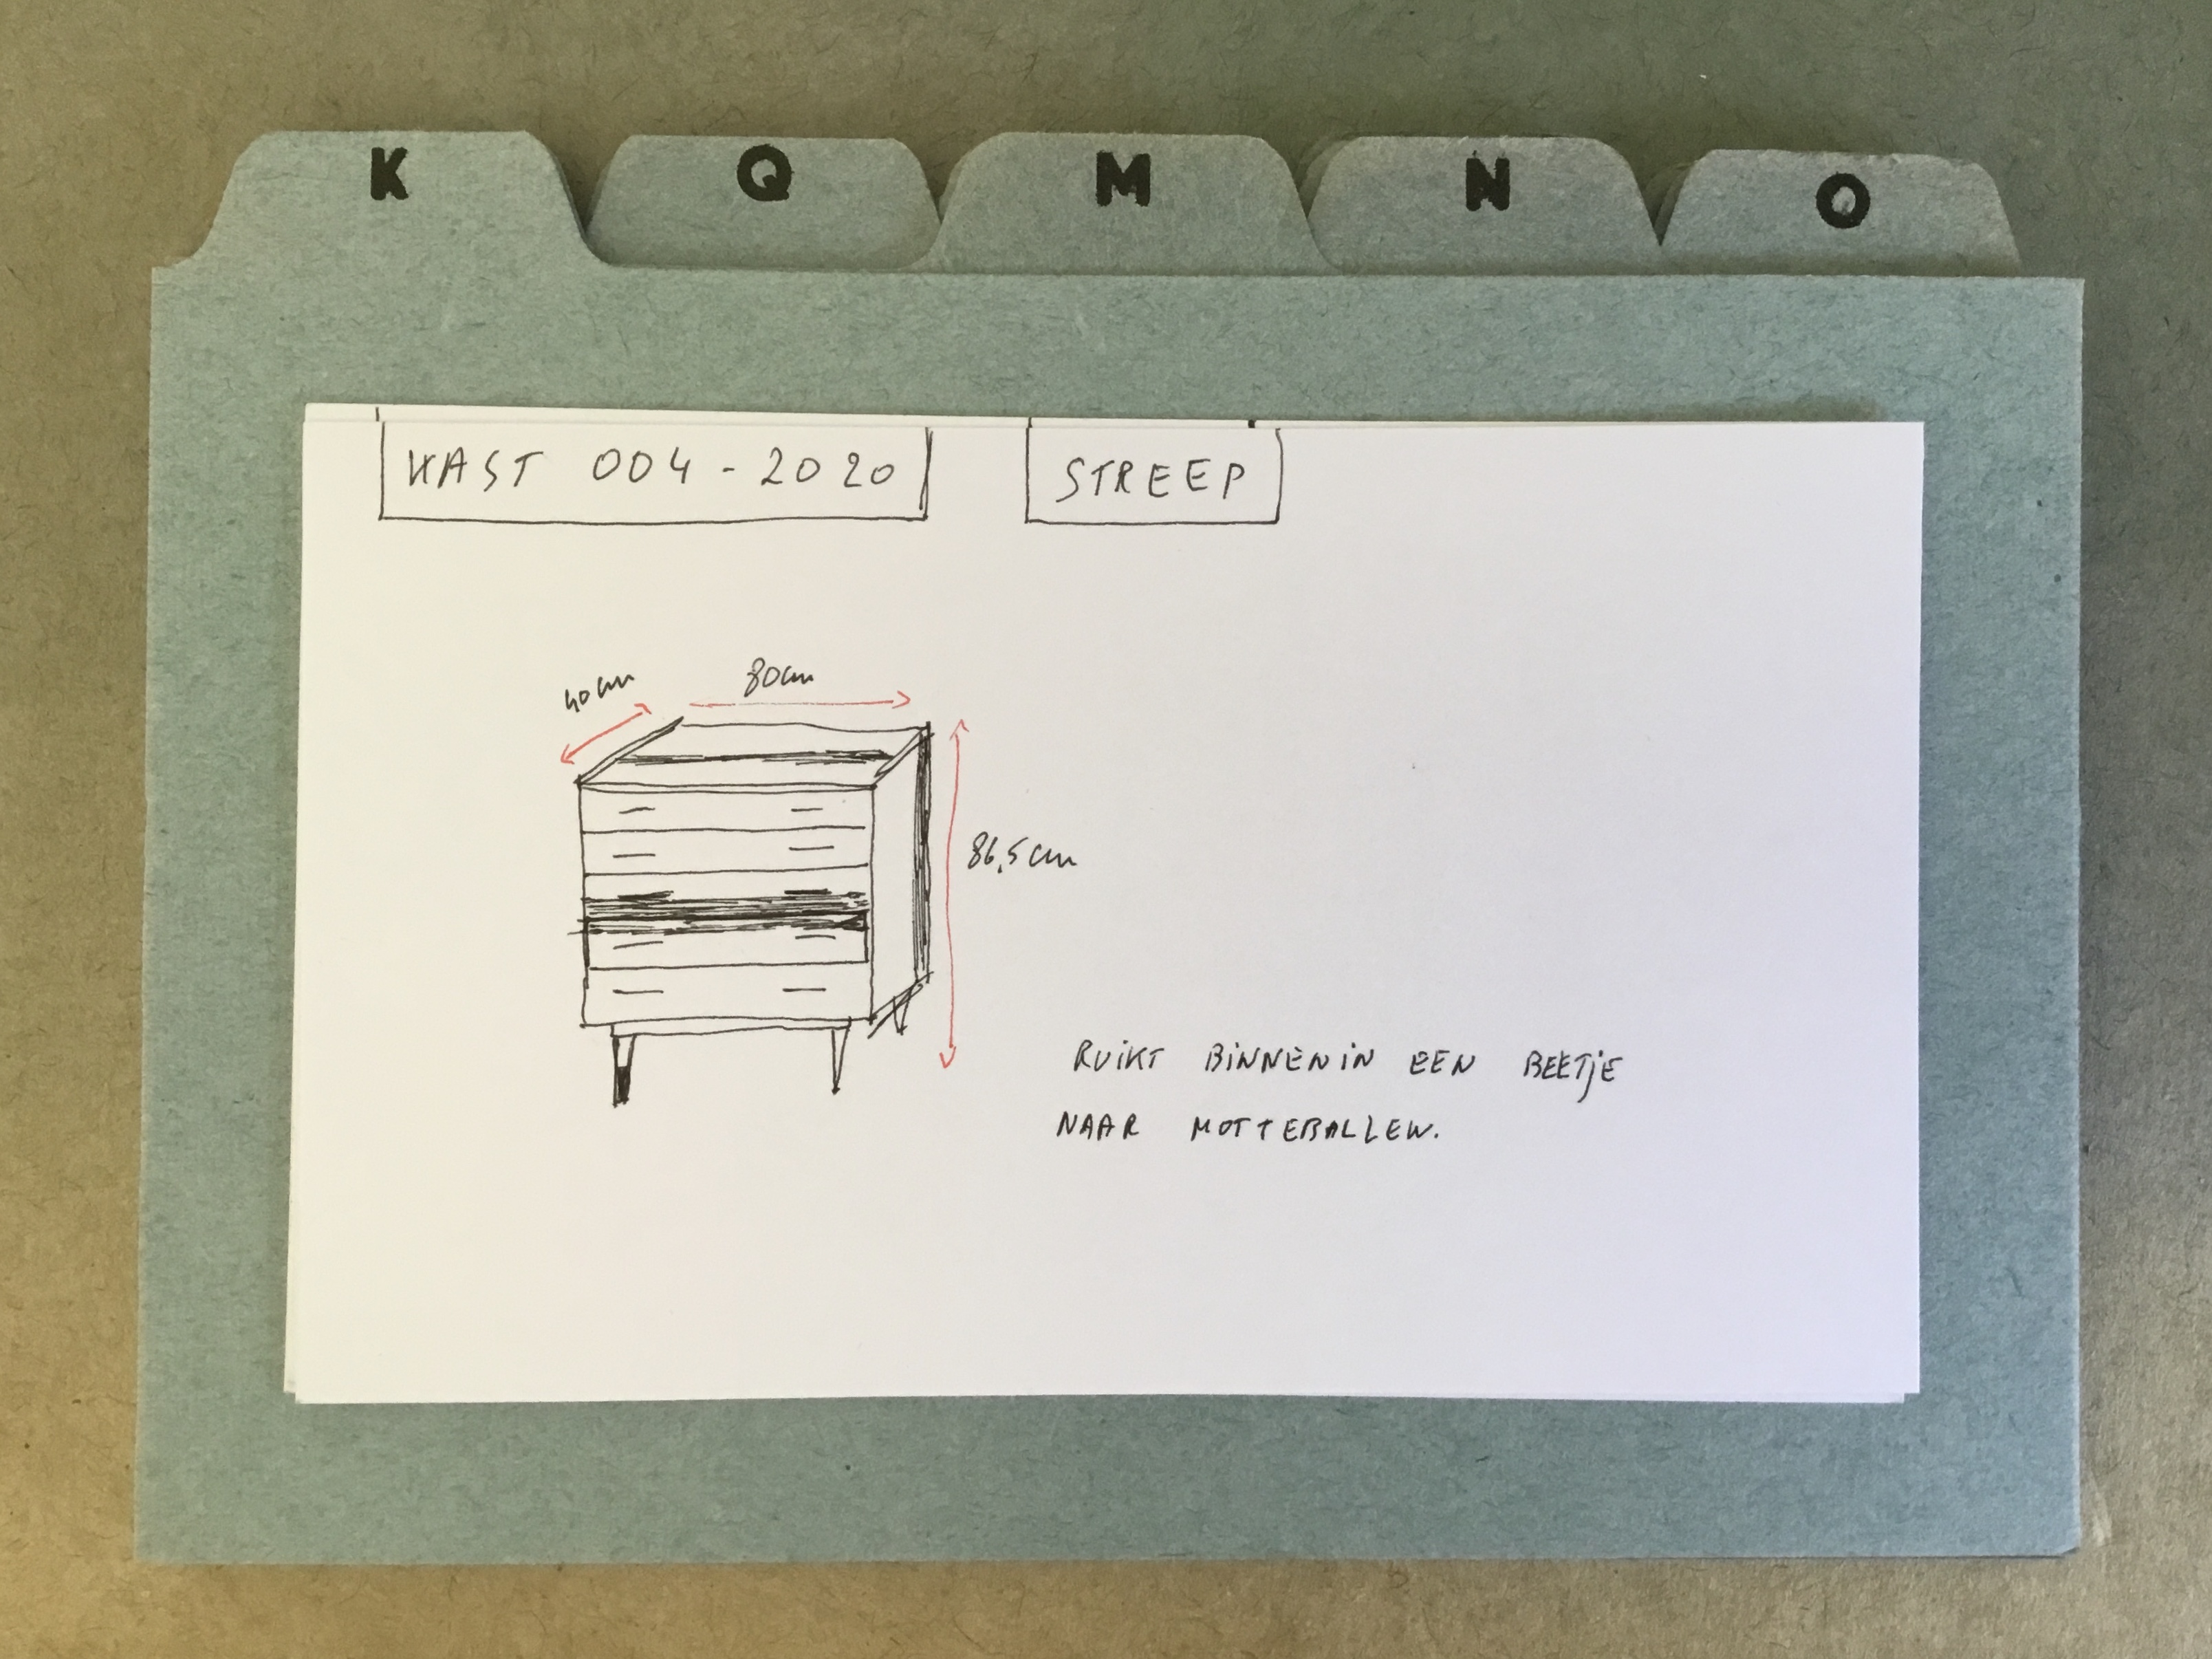 K Q M N O
KAST 004-2020 STREEP
40cm 80cm
86,5cm
RUIKT BINNENIN EEN BEETJE
NAAR MOTTEBALLEN.